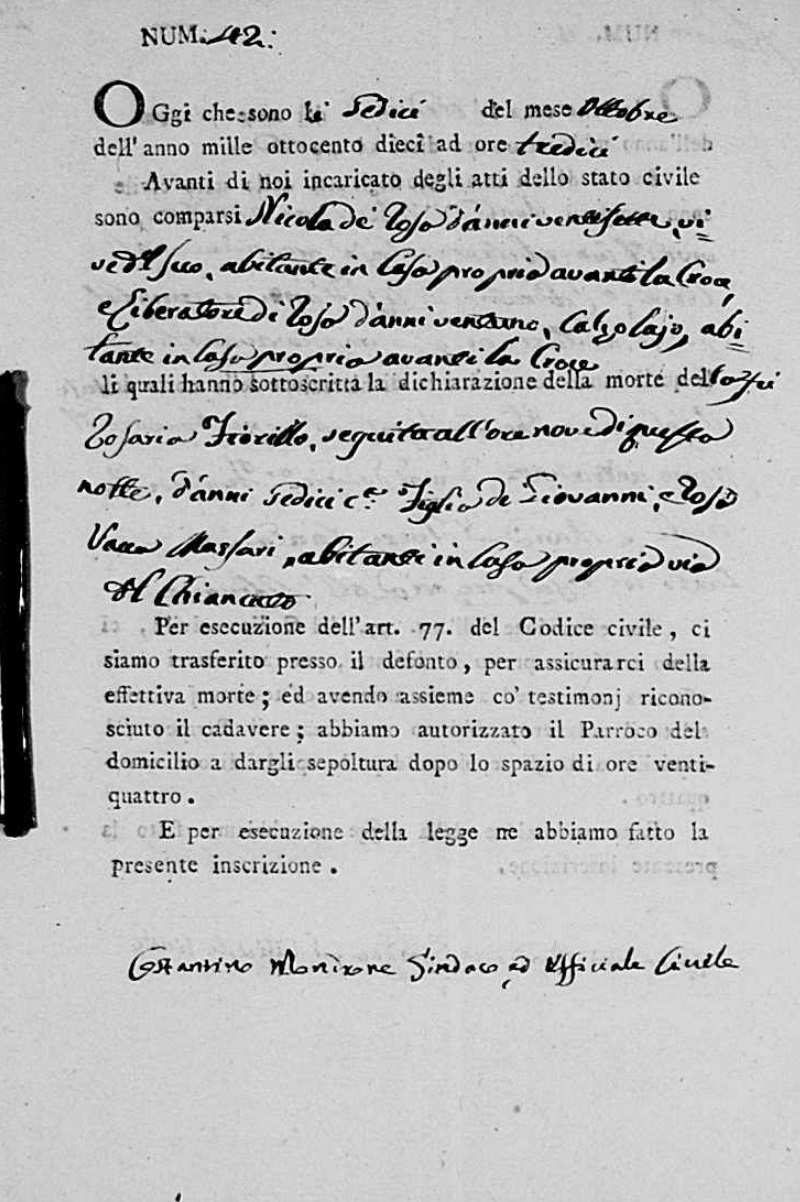 NUM. 42.
OGgi che sono li Sedici del mese Ottobre
dell' anno mille ottocento dieci ad ore tredici
Avanti di noi incaricato degli atti dello stato civile
sono comparsi Nicola de Roso d'anni ventisette, vi=
ve del suo, abitante in Casa propria avanti la Croce,
e Liberatore di Roso d'anni ventuno, Calzolajo, abi=
tante in Casa propria avanti la Croce
li quali hanno sottoscritta la dichiarazione della morte del
Rosaria Fiorillo, seguita all'ore nove di questa
notte, d'anni sedici Figlia de Giovanni, e Rosa
Vacca Massari, abitanti in Casa propria via
del
Per esecuzione dell'art. 77. del Codice civile, ci
siamo trasferito presso il defonto, per assicurarci della
effettiva morte; ed avendo assieme co' testimonj ricono-
sciuto il cadavere; abbiamo autorizzato il Parroco del
domicilio a dargli sepoltura dopo lo spazio di ore venti-
quattro.
E per esecuzione della legge ne abbiamo fatto la
presente inscrizione.
Costantino Mondrone Sindaco ed Ufficiale Civile